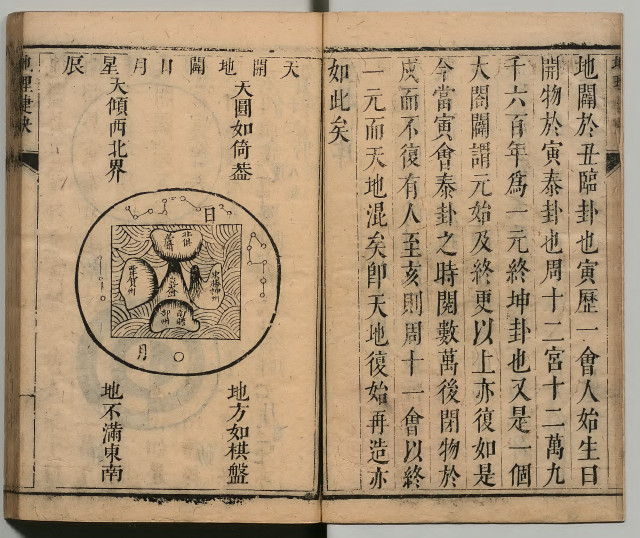 地闢於丑臨卦也寅歷一會人始生曰
開物於寅泰卦也周十二宮十二萬九
千六百年為一元終坤卦也又是一個
大闔闢謂元始及終更以上亦復如是
今當寅會泰卦之時閱數萬後閉物於
戌而不復有人至亥則周十一會以終
一元而天地混矣卽天地復始再造亦
如此矣
天開地闢日月星辰
天圓如倚葢
天傾西北界
日
北俱
蘆洲
東勝神州
南贍
部州
月
地方如棋盤
地不滿東南
地理